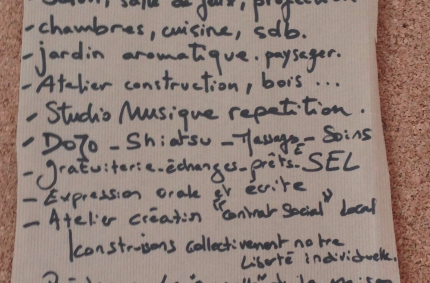 - Salon, salle de jeux, projection
- chambres, cuisine, sdb.
- jardin aromatique. paysager.
- Atelier construction, bois ...
- Studio Musique repetition.
- Dojo - Shiatsu - Massage - Soins
- gratuiterie - échanges - prêts - SEL
- Expression orale et écrite
- Atelier création "contrat social" local
construisons collectivement notre
Liberté individuelle.